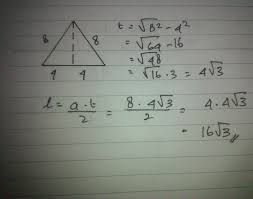 8 8
4 4
t = √8² - 4²
= √64 - 16
= √48
= √16 . 3 = 4√3
l = a . t / 2 = 8 . 4√3 / 2 = 4 . 4√3
= 16√3 //